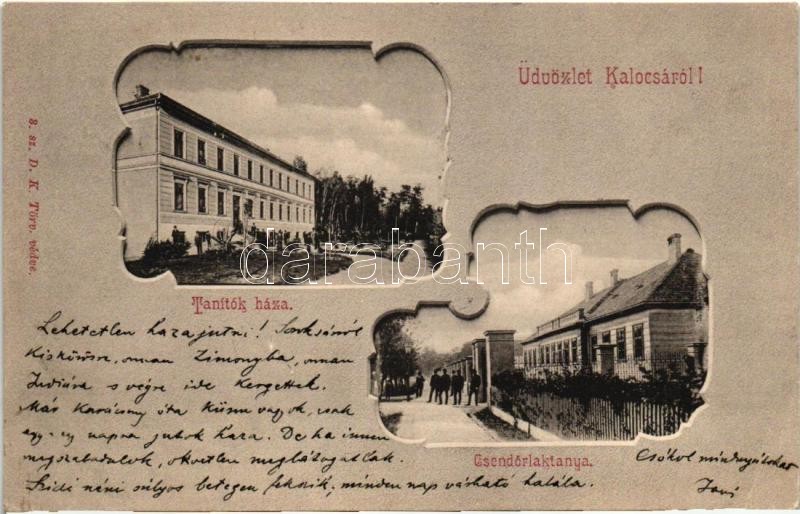 Üdvözlet Kalocsáról!
8. sz. D. K. Törv. védve.
darabanth
Tanítók háza.
Lehetetlen hazajutni! Soroksárról
Kiskőrösre, onnan Zimonyba, onnan
s végre ide kergettek.
Már Karácsony óta künn vagyok, csak
egy-egy napra jutok haza. De ha innen
megszabadulok, okvetlen meglátogatlak.
Csendőrlaktanya.
Csókol mindnyájatokat
néni súlyos betegen fekszik, minden nap várható halála.